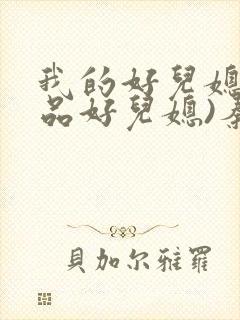 我的好兒媳
品好兒媳)
貝加尔雅羅